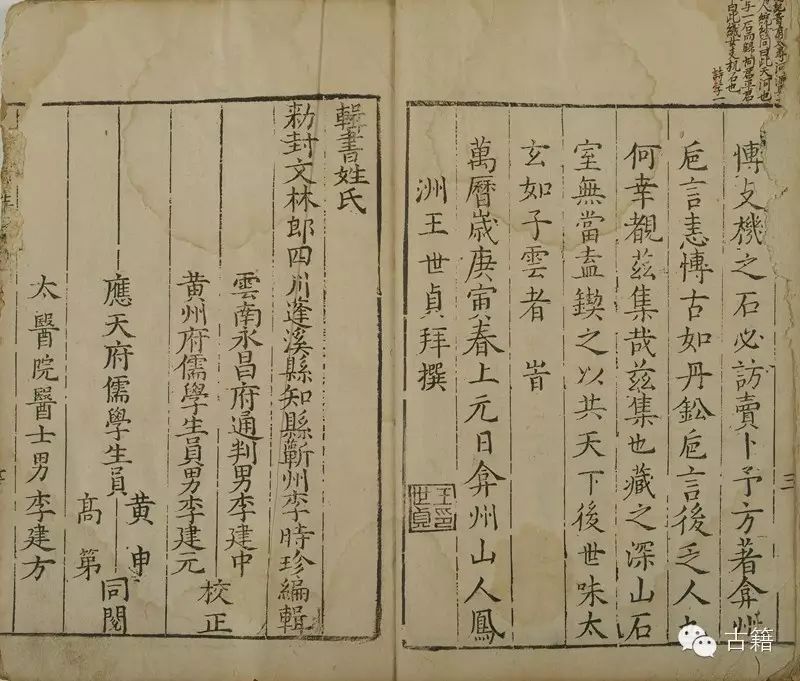 博攴機之石必訪賣卜予方著弇州
巵言恚愽古如丹鈆巵言後乏人也
何幸覩茲集哉茲集也藏之深山石
室無當盍鍥之以共天下後世味太
玄如子雲者 旹
萬曆歲庚寅春上元日弇州山人鳳
洲王世貞拜撰
王印
世貞
三
輯書姓氏
勑封文林郎四川蓬溪縣知縣蘄州李時珍編輯
雲南永昌府通判男李建中
黃州府儒學生員男李建元
校正
應天府儒學生員
黃申
高第
同閱
太醫院醫士男李建方
古籍